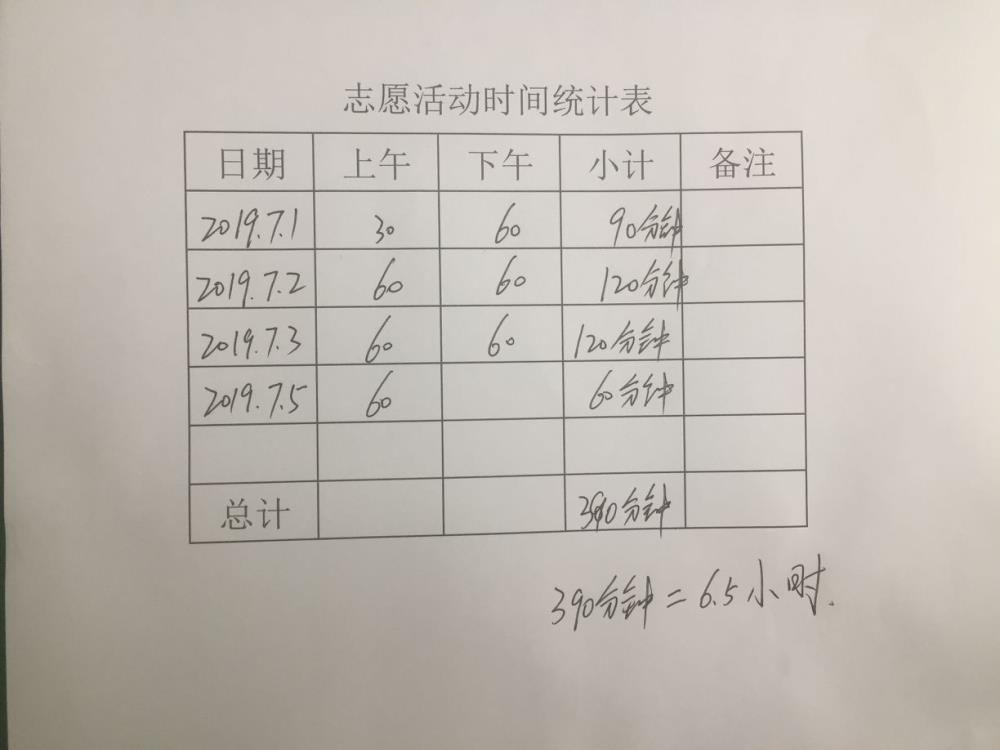 志愿活动时间统计表
日期 上午 下午 小计 备注
2019.7.1 30 60 90分钟
2019.7.2 60 60 120分钟
2019.7.3 60 60 120分钟
2019.7.5 60 60分钟
总计 390分钟
390分钟=6.5小时.